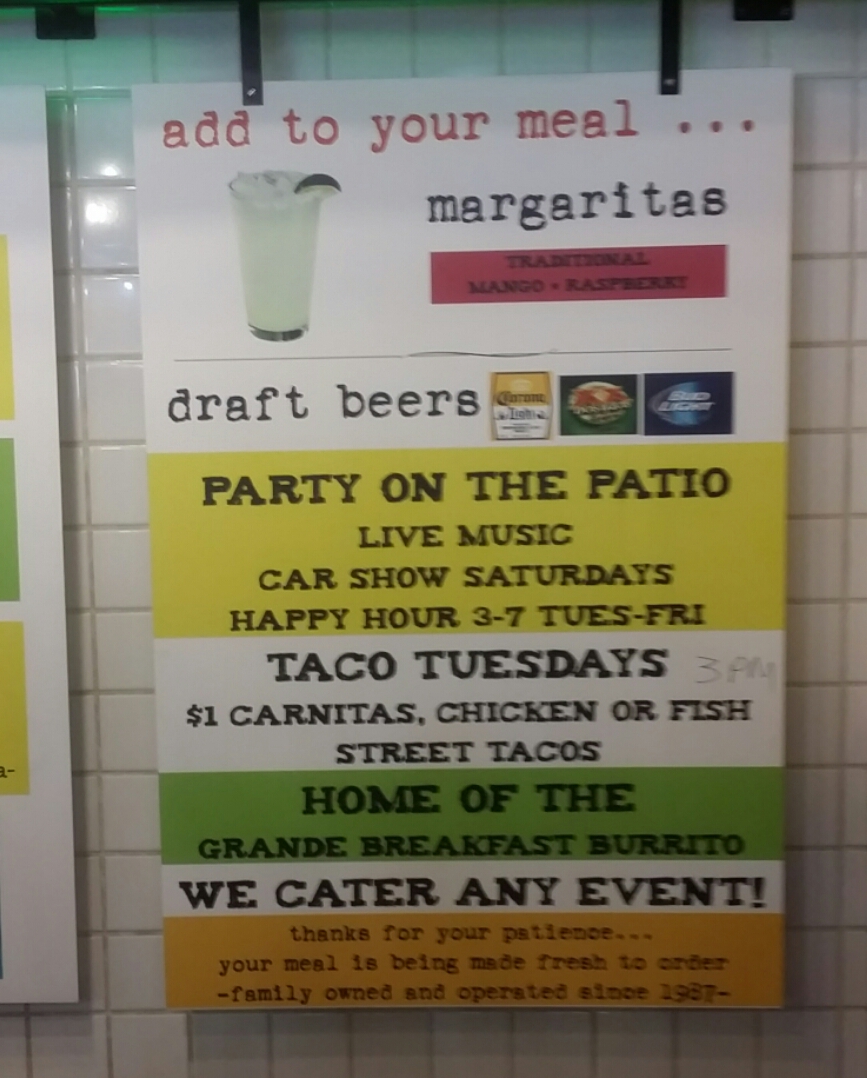 add to your meal ...
margaritas
TRADITIONAL
MANGO • RASPBERRY
draft beers
Corona
Light
BUD
LIGHT
PARTY ON THE PATIO
LIVE MUSIC
CAR SHOW SATURDAYS
HAPPY HOUR 3-7 TUES-FRI
TACO TUESDAYS 3PM
$1 CARNITAS, CHICKEN OR FISH
STREET TACOS
HOME OF THE
GRANDE BREAKFAST BURRITO
WE CATER ANY EVENT!
thanks for your patience...
your meal is being made fresh to order
-family owned and operated since 1987-
a-